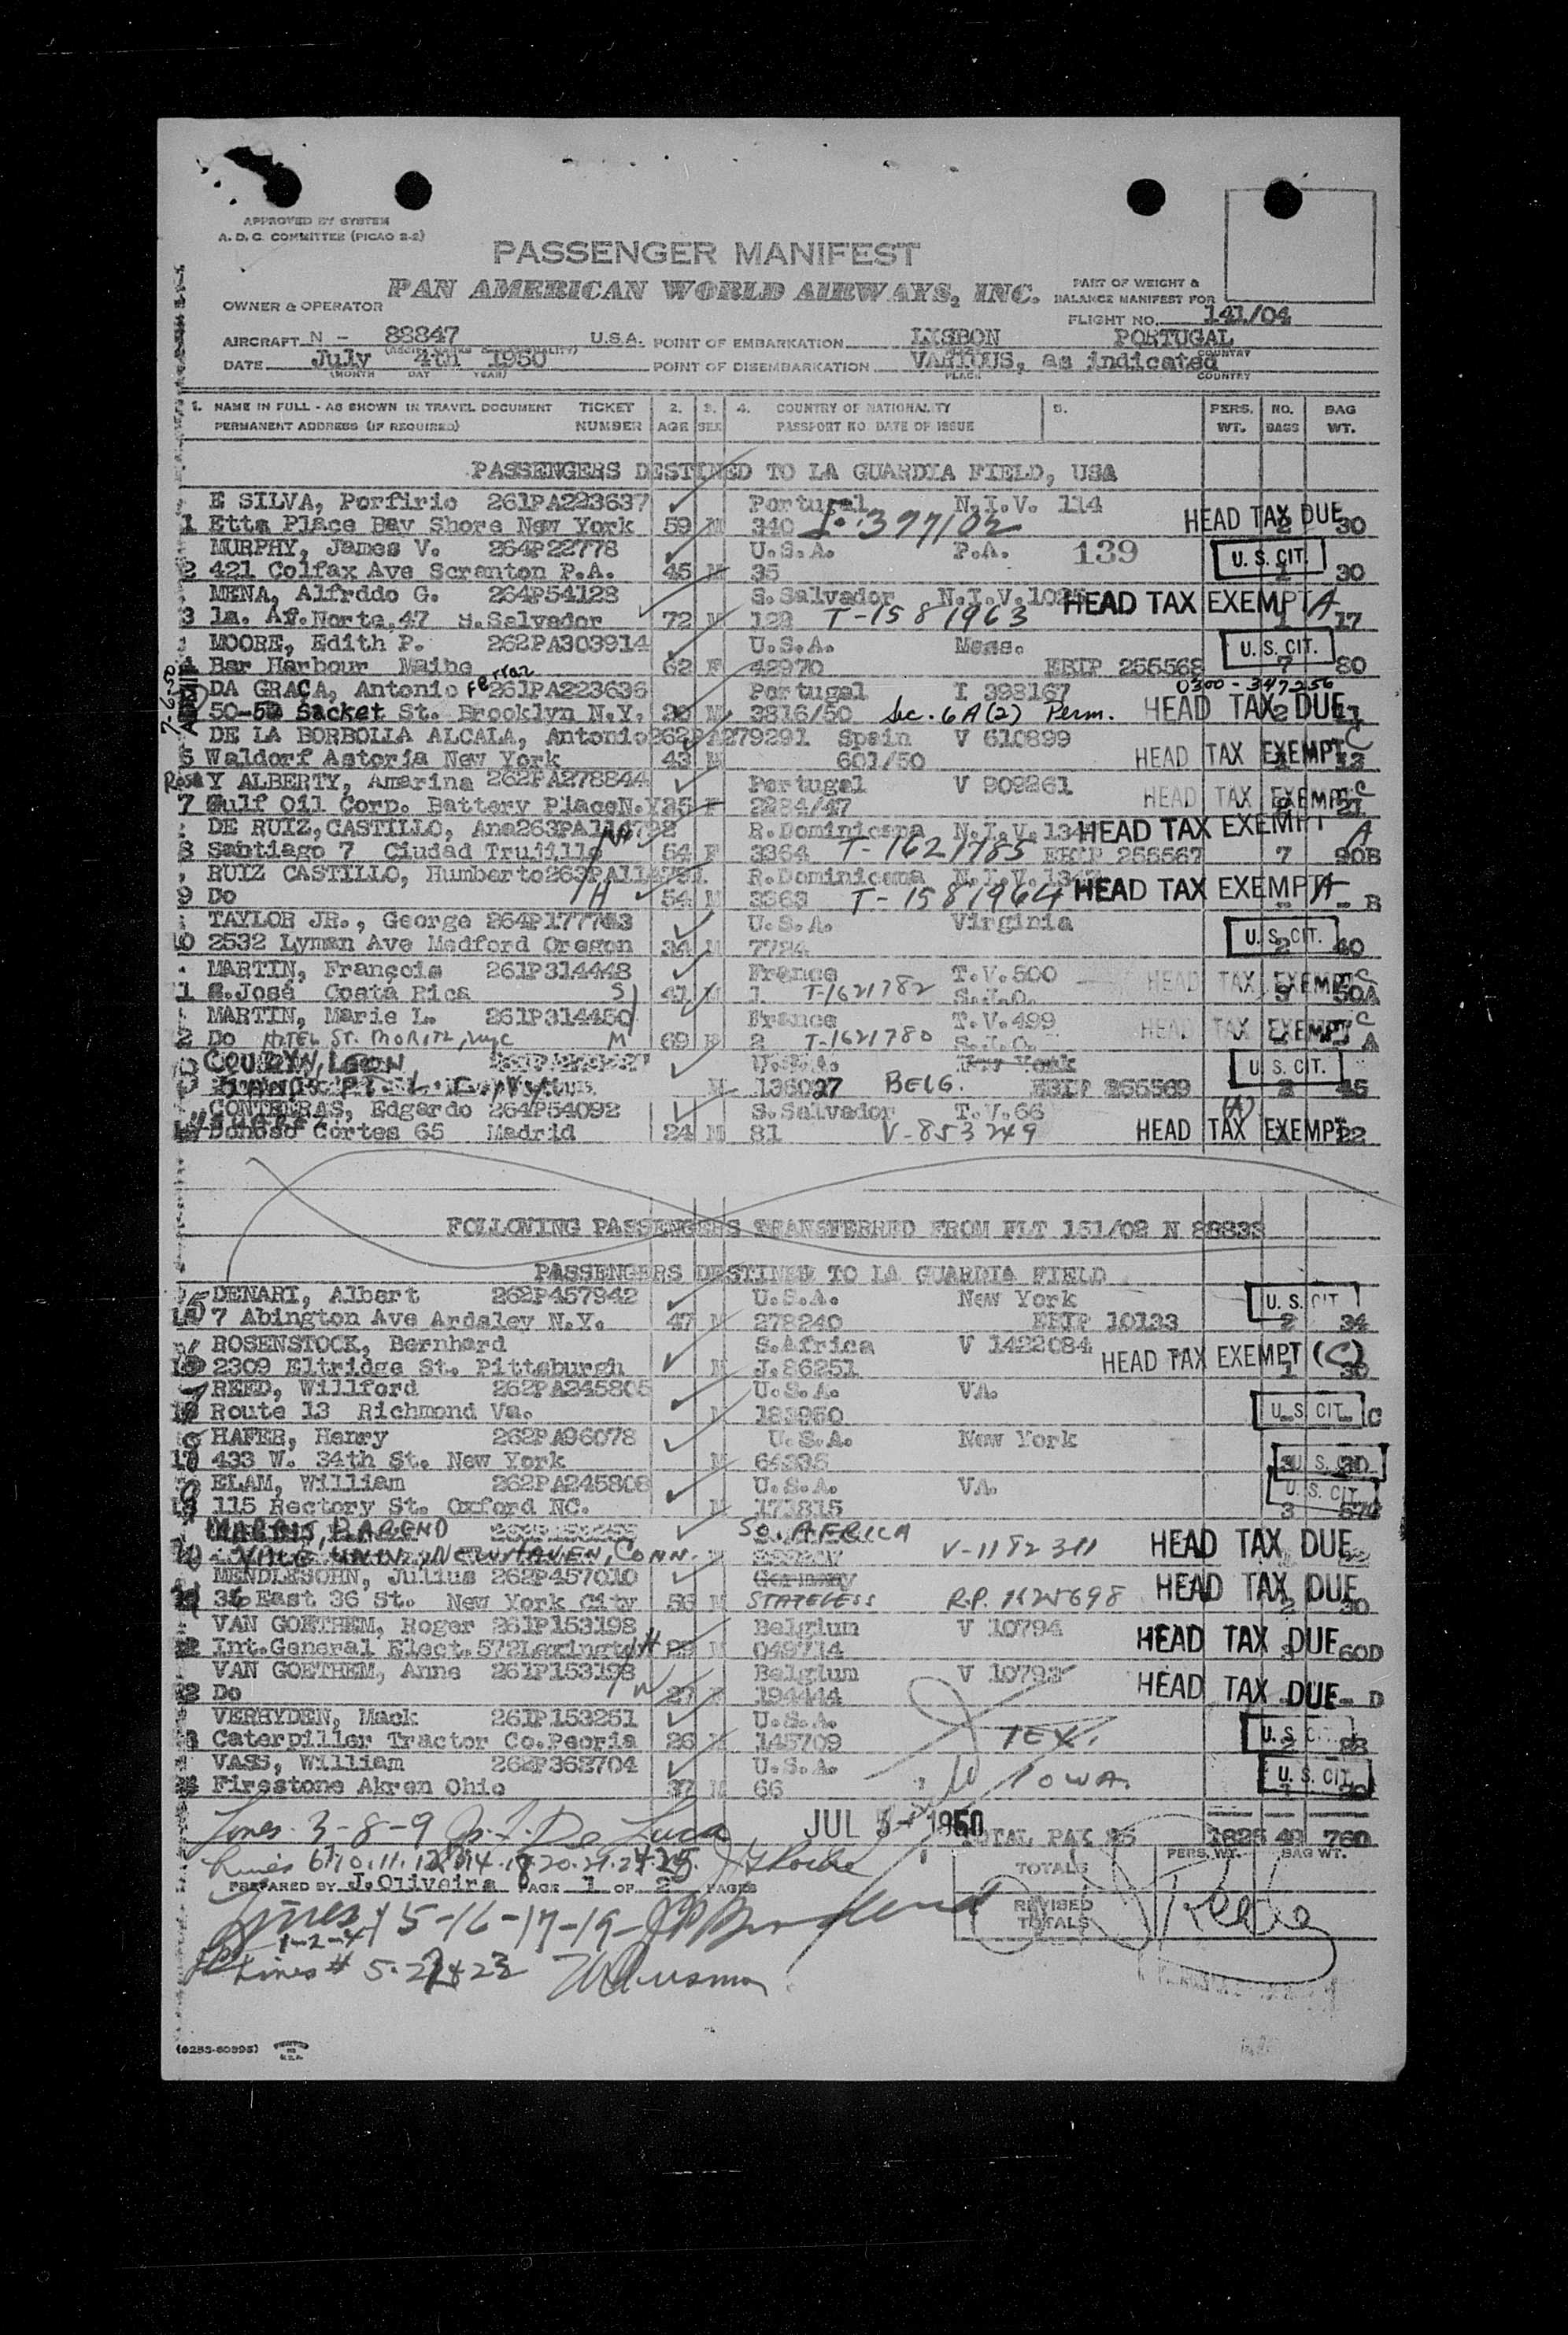 APPROVED BY SYSTEM
A. D. C. COMMITTEE (PICAO 2-2)
PASSENGER MANIFEST
OWNER & OPERATOR PAN AMERICAN WORLD AIRWAYS, INC.
PART OF WEIGHT &
BALANCE MANIFEST FOR
FLIGHT NO. 141/04
AIRCRAFT N - 88847 U.S.A. POINT OF EMBARKATION LISBON PORTUGAL
DATE July 4th 1950 POINT OF DISEMBARKATION VARIOUS, as indicated
(MONTH DAY YEAR) PLACE COUNTRY
1. NAME IN FULL - AS SHOWN IN TRAVEL DOCUMENT TICKET 2. 3. 4. COUNTRY OF NATIONALITY 5. PERS. NO. BAG
PERMANENT ADDRESS (IF REQUIRED) NUMBER AGE SEX PASSPORT NO. DATE OF ISSUE WT. BAGS WT.
PASSENGERS DESTINED TO LA GUARDIA FIELD, USA
E SILVA, Porfirio 261PA223637 Portugal N.I.V. 114
1 Etta Place Bay Shore New York 59 M 340 HEAD TAX DUE 2 30
MURPHY, James V. 264P22778 U.S.A. P.A. 139 U. S. CIT.
2 421 Colfax Ave Scranton P.A. 45 M 35 1 30
MENA, Alfrddo G. 264P54128 S.Salvador N.I.V. HEAD TAX EXEMPT A
3 1a. Av.Norte,47 S.Salvador 72 M 128 T-1581963 1 17
MOORE, Edith P. 262PA303914 U.S.A. Mass. U. S. CIT.
4 Bar Harbour Maine 62 F 42970 EBIP 255568 7 80
DA GRAÇA, Antonio Ferraz 261PA223636 Portugal I 398167 0300-347256
50-50 Sacket St. Brooklyn N.Y. M 3816/50 Sec. 6A(2) Perm. HEAD TAX DUE
7-6-50
DE LA BORBOLLA ALCALA, Antonio 262PA279291 Spain V 610899
6 Waldorf Astoria New York 43 M 601/50 HEAD TAX EXEMPT C 13
Rosa Y ALBERTY, Amarina 262PA278844 Portugal V 909261
7 Gulf Oil Corp. Battery Place N.Y 35 F 2284/47 HEAD TAX EXEMPT C 21
DE RUIZ, CASTILLO, Ana 263PA R.Dominicana N.I.V. HEAD TAX EXEMPT A
8 Santiago 7 Ciudad Trujillo 54 F 3364 T-1621785 EBIP 255567 7 90B
RUIZ CASTILLO, Humberto R.Dominicana N.I.V. HEAD TAX EXEMPT A
9 Do 54 M 3363 T-1581964 - B
TAYLOR JR., George U.S.A. Virginia U. S. CIT.
10 2532 Lyman Ave Medford Oregon 34 M 7724 2 40
MARTIN, François 261P314448 France T.V.500 HEAD TAX EXEMPT C
1 S.José Costa Rica 41 M 1 T-1621782 S.I.O. 50A
MARTIN, Marie L. 261P314450 France T.V.499 HEAD TAX EXEMPT C
2 Do HOTEL ST. MORITZ, NYC 69 F 2 T-1621780 S.I.O. A
U.S.A. New York U. S. CIT.
M BELG. EBIP 255569 45
CONTRERAS, Edgardo 264P54092 S.Salvador T.V.66 (A)
Donoso Cortes 65 Madrid 24 M 81 V-853249 HEAD TAX EXEMPT 22
FOLLOWING PASSENGERS TRANSFERRED FROM FLT 151/02 N 88833
PASSENGERS DESTINED TO LA GUARDIA FIELD
DENARI, Albert 262P457942 U.S.A. New York U. S. CIT
15 7 Abington Ave Ardsley N.Y. 47 M 278240 EBIP 10133 2 34
ROSENSTOCK, Bernhard S.Africa V 1422084
2309 Eltridge St. Pittsburgh M J.86251 HEAD TAX EXEMPT (C) 1 30
REED, Willford 262PA245805 U.S.A. VA.
Route 13 Richmond Va. M 183960 U. S. CIT. C
HAFER, Henry 262PA96078 U.S.A. New York
433 W. 34th St. New York M U. S. CIT
ELAM, William 262PA245806 U.S.A. VA. U. S. CIT
115 Rectory St. Oxford NC. M 171815 3
MARAIS, BAREND SO. AFRICA
YALE UNIV., NEW HAVEN, CONN. V-1182311 HEAD TAX DUE
MENDLESOHN, Julius 262P457010 Germany
36 East 36 St. New York City 56 M STATELESS R.P. 1625698 HEAD TAX DUE 2 30
VAN GOETHEM, Roger 261P153198 Belgium V 10794
Int.General Elect.572Lexington 29 M 049714 HEAD TAX DUE 60D
VAN GOETHEM, Anne 261P153199 Belgium V 10793
Do 27 F 194444 HEAD TAX DUE - D
VERHYDEN, Mack 261P153251 U.S.A. TEX. U. S. CIT
Caterpiller Tractor Co.Peoria 26 M 145709
VASS, William 262P363704 U.S.A. IOWA. U. S. CIT
Firestone Akron Ohio 37 M 66
Lines 3-8-9 De Luca JUL 5 1950 TOTAL PAX 25 1825 49 760
Lines TOTALS PERS. WT. BAG WT.
PREPARED BY J.Oliveira PAGE 1 OF 2 PAGES
Lines 15-16-17-19 REVISED TOTALS
1-2-4
Lines #
(6253-60395) PRINTED IN U.S.A.